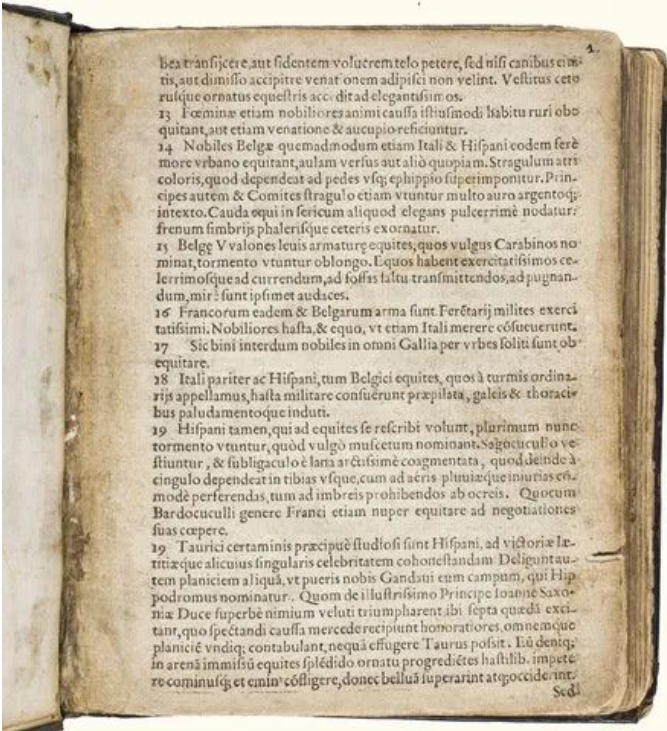 2.
bea transijcere, aut sidentem volucrem telo petere, sed nisi canibus cin
tis, aut dimisso accipitre venationem adipisci non velint. Vestitus cete
rusque ornatus equestris accedit ad elegantissimos.
13 Fœminæ etiam nobiliores animi caussa istiusmodi habitu ruri obe
quitant, aut etiam venatione & aucupio reficiuntur.
14 Nobiles Belgæ quemadmodum etiam Itali & Hispani eodem ferè
more vrbano equitant, aulam versus aut aliò quopiam. Stragulum atri
coloris, quod dependeat ad pedes vsq; ephippio superimponitur. Prin-
cipes autem & Comites stragulo etiam vtuntur multo auro argentoq;
intexto. Cauda equi in sericum aliquod elegans pulcerrimè nodatur:
frenum fimbrijs phalerisque ceteris exornatur.
15 Belgę Vvalones leuis armaturę equites, quos vulgus Carabinos no
minat, tormento vtuntur oblongo. Equos habent exercitatissimos ce-
lerrimosque ad currendum, ad fossas saltu transmittendos, ad pugnan-
dum, mirè sunt ipsimet audaces.
16 Francorum eadem & Belgarum arma sunt. Ferẽtarij milites exerci
tatissimi. Nobiliores hasta, & equo, vt etiam Itali merere cõsueuerunt.
17 Sic bini interdum nobiles in omni Gallia per vrbes soliti sunt ob
equitare.
18 Itali pariter ac Hispani, tum Belgici equites, quos à turmis ordina-
rijs appellamus, hasta militare consuerunt præpilata, galeis & thoraci-
bus paludamentoque induti.
19 Hispani tamen, qui ad equites se rescribi volunt, plurimum nunc
tormento vtuntur, quòd vulgò muscetum nominant. Sagocucullo ve
stiuntur, & subligaculo è lana arctissimè coagmentata, quod deinde à
cingulo dependeat in tibias vsque, cum ad aëris pluuiæque iniurias cõ-
modè perferendas, tum ad imbreis prohibendos ab ocreis. Quocum
Bardocuculli genere Franci etiam nuper equitare ad negotiationes
suas cœpere.
19 Taurici certaminis præcipuè studiosi sunt Hispani, ad victoriæ læ-
titiæque alicuius singularis celebritatem cohonestandam Deligunt au-
tem planiciem aliquã, vt pueris nobis Gandaui eum campum, qui Hip
podromus nominatur. Quom de illustrissimo Principe Ioanne Saxo-
niæ Duce superbè nimium veluti triumpharent ibi septa quædã exci-
tant, quo spectandi caussa mercede recipiunt honoratiores, omnemque
planiciẽ vndiq; contabulant, nequà effugere Taurus possit. Eũ deniq;
in arenã immissũ equites splẽdido ornatu progrediẽtes hastilib. impete
re cominusq; et emin' cõfligere, donec belluã superarint atq; occiderint.
Sed